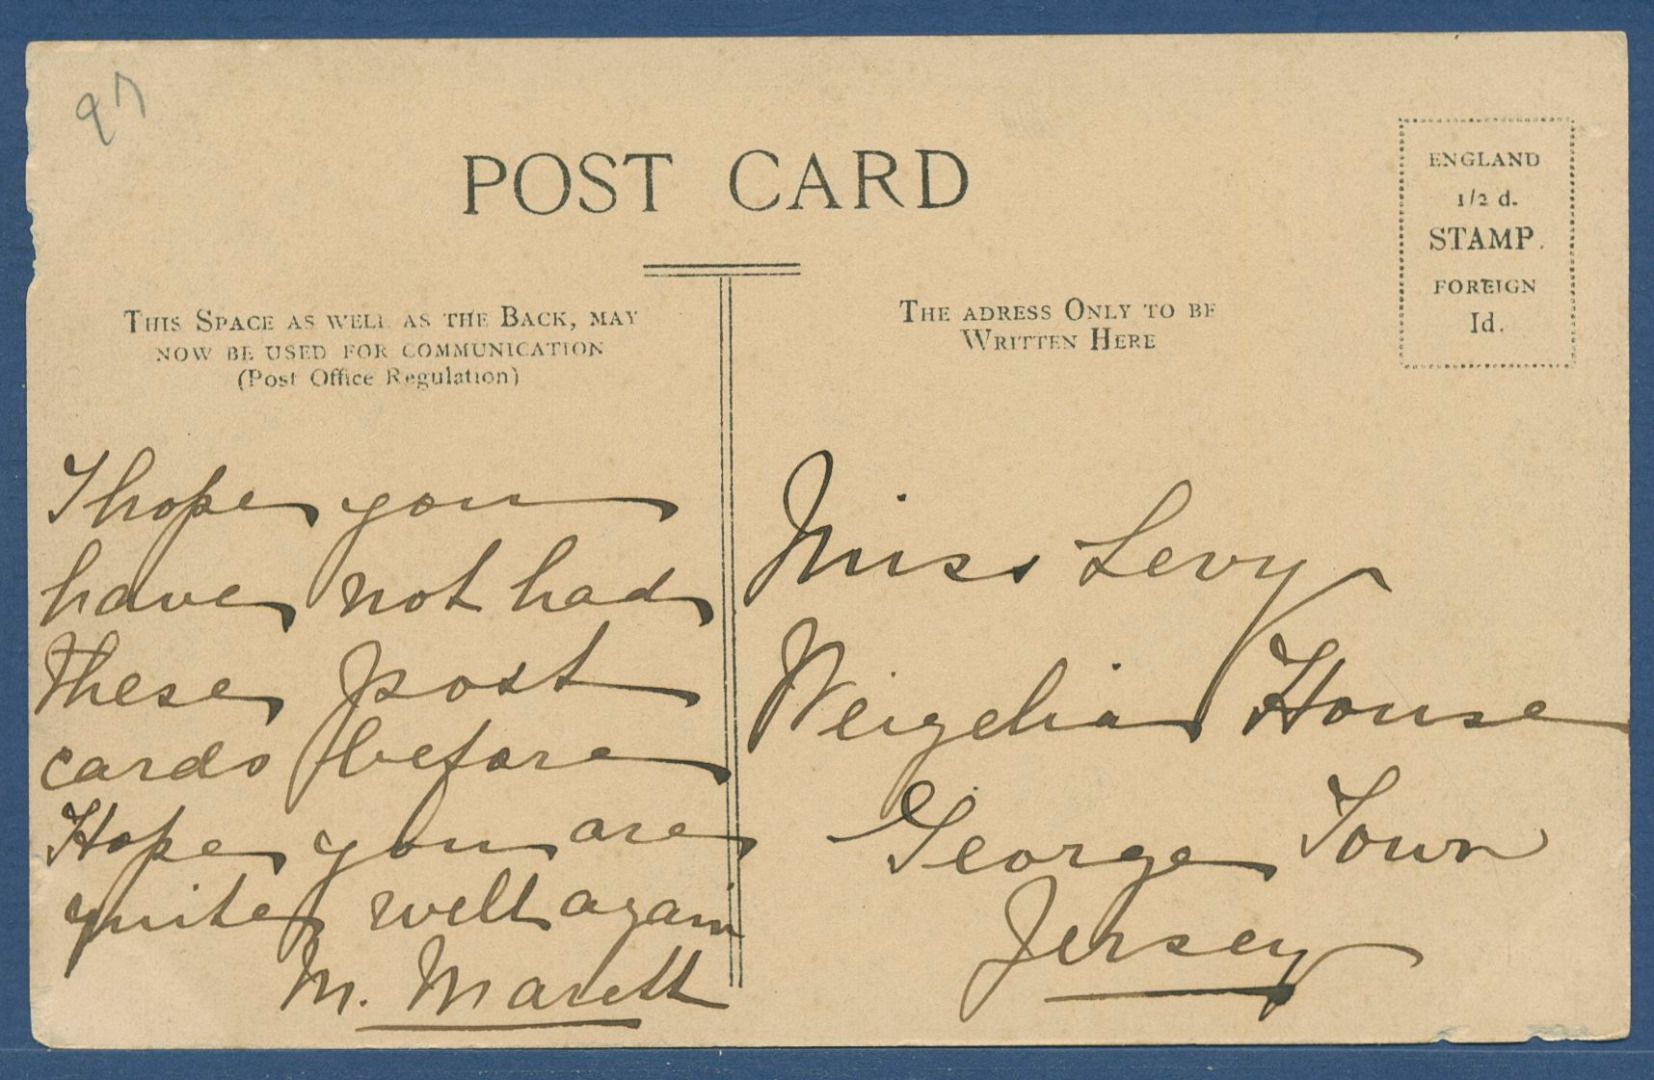 97
POST CARD
ENGLAND
1/2 d.
STAMP.
FOREIGN
1d.
THIS SPACE AS WELL AS THE BACK, MAY
NOW BE USED FOR COMMUNICATION
(Post Office Regulation)
THE ADRESS ONLY TO BE
WRITTEN HERE
I hope you
have not had
these post
cards before
Hope you are
quite well again
M. Marett
Miss Levy
Weigelia House
George Town
Jersey